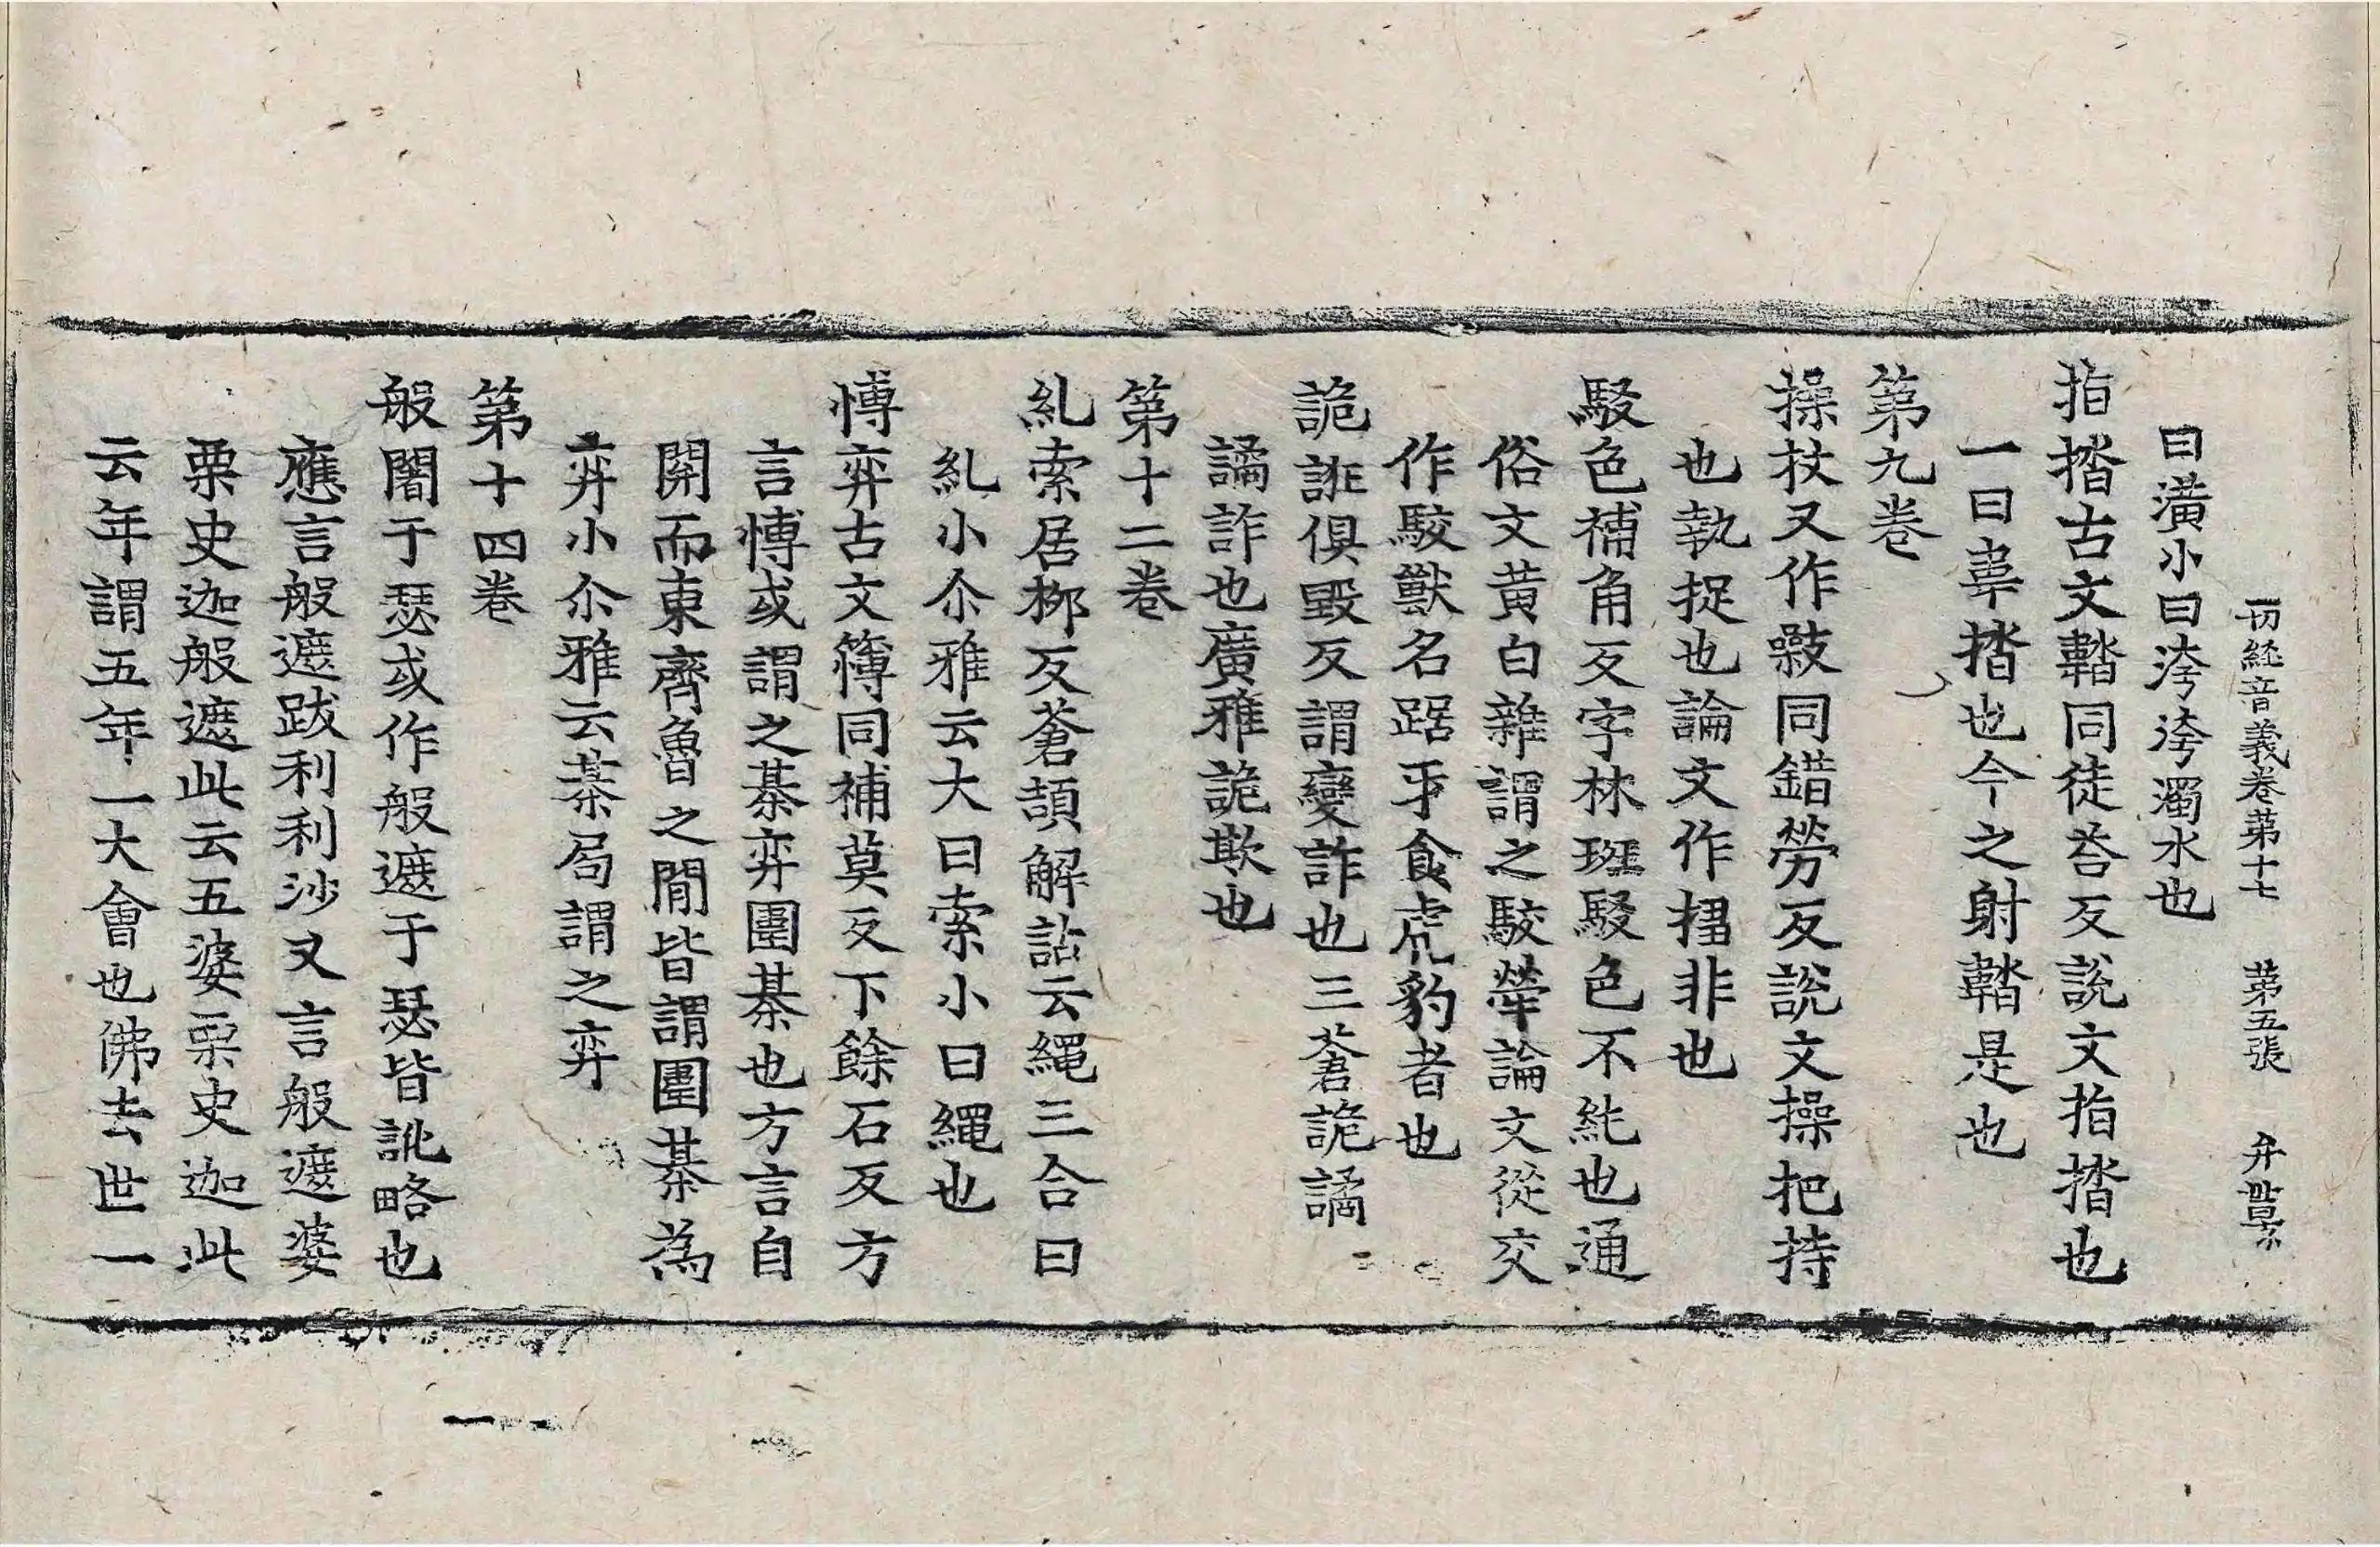 一切經音義卷第十七 第五張 弁
曰潢小曰洿洿濁水也
指揩古文鞜同徒荅反說文指揩也
一曰韋揩也今之射鞜是也
第九卷
操杖又作㪣同錯勞反說文操把持
也執捉也論文作㨪非也
駁色補角反字林班駁色不純也通
俗文黃白雜謂之駮犖論文從交
作駮獸名踞牙食虎豹者也
詭誑俱毀反謂變詐也三蒼詭譎
譎詐也廣雅詭欺也
第十二卷
糺索居柳反蒼頡解詁云繩三合曰
糺小尒雅云大曰索小曰繩也
愽弈古文簙同補莫反下餘石反方
言愽或謂之棊弈圍棊也方言自
關而東齊魯之閒皆謂圍棊為
弈小尒雅云棊局謂之弈
第十四卷
般闍于瑟或作般遮于瑟皆訛略也
應言般遮跋利利沙又言般遮婆
栗史迦般遮此云五婆栗史迦此
云年謂五年一大會也佛去世一